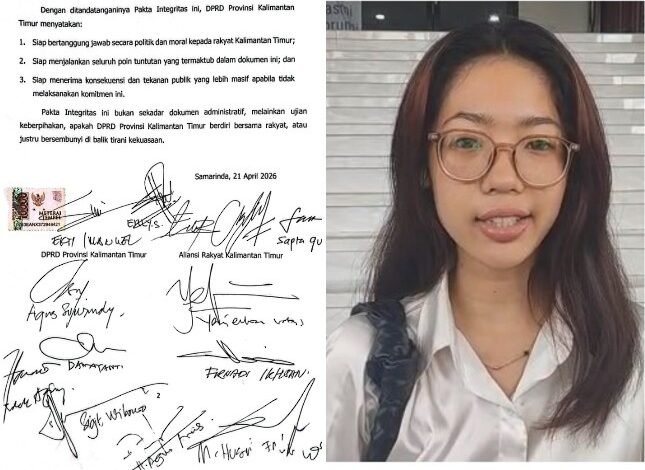 Dengan ditandatanganinya Pakta Integritas ini, DPRD Provinsi Kalimantan
Timur menyatakan:
1. Siap bertanggung jawab secara politik dan moral kepada rakyat Kalimantan Timur;
2. Siap menjalankan seluruh poin tuntutan yang termaktub dalam dokumen ini; dan
3. Siap menerima konsekuensi dan tekanan publik yang lebih masif apabila tidak
melaksanakan komitmen ini.
Pakta Integritas ini bukan sekadar dokumen administratif, melainkan ujian
keberpihakan, apakah DPRD Provinsi Kalimantan Timur berdiri bersama rakyat, atau
justru bersembunyi di balik tirani kekuasaan.
Samarinda, 21 April 2026
10000
METERAI
TEMPEL
EKTI IMANUEL
Sapto
DPRD Provinsi Kalimantan Timur
Aliansi Rakyat Kalimantan Timur
Agus
DAMAYANTI
FIRNADI IKHSAN
Sigit Wibowo